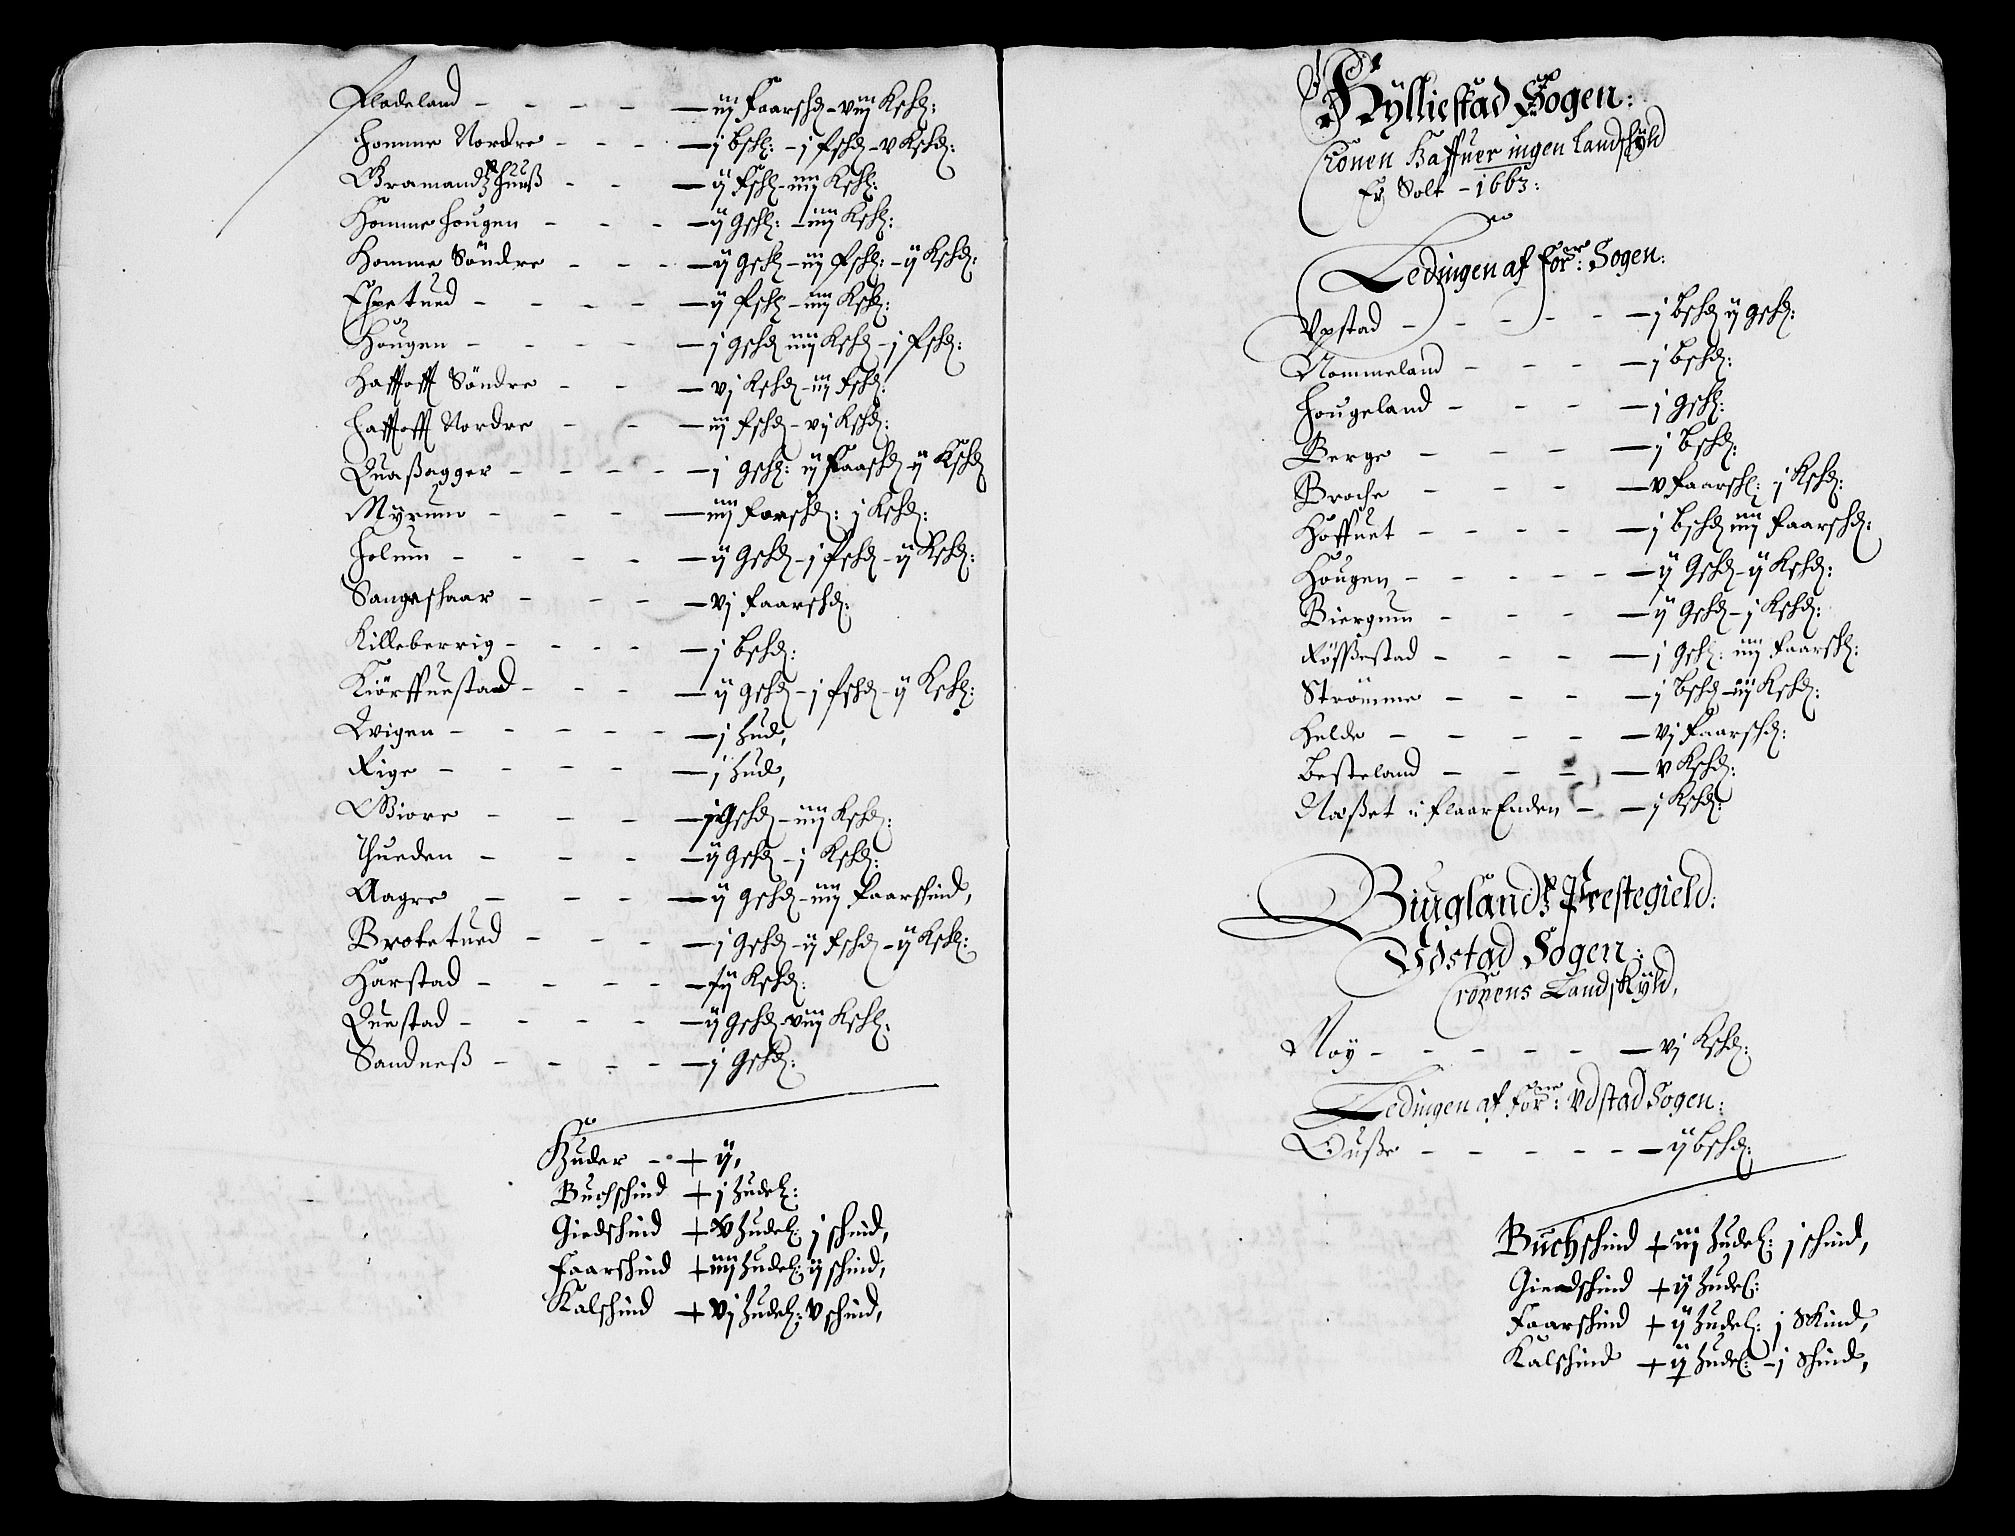 Fladeland - - - - — iij Faarschd - viij Kschd:
Homme Nordre - - - — j bschd: - j fschd - v Kschd:
Bramandz Huuß - - — ij fschd - iiij Kschd:
Homme Hougen - - - — ij gschd: - iiij Kschd:
Homme Söndre - - - — ij gschd - iij fschd: - ij Kschd:
Espetued - - - - — ij fschd - iiij Kschd:
Hougen - - - - — j gschd iiij Kschd - j fschd:
Haffoff Söndre - - — vj Kschd - iij fschd:
Haffoff Nordre - - — iij fschd - vj Kschd:
Quaßagger - - - - — j gschd: iij Faaschd ij Kschd
Myrum - - - - — iiij Faarschd: j Kschd:
Holum - - - - — ij gschd - j fschd - ij Kschd:
Sangeshaar - - - — vj Faarschd:
Killeberrig - - - - — j bschd:
Kiörffuestaed - - - — ij gschd - j fschd - ij Kschd:
Qvigen - - - - - — j Hud,
Rige - - - - — j Hud,
Giore - - - — j Gschd - iiij Kschd:
Thueden - - - — ij gschd - j Kschd:
Aagre - - - — ij gschd - iiij Faarschind,
Brotetued - - - — j gschd - ij fschd - ij Kschd:
Harstad - - - - — ij Kschd:
Questad - - - - — ij gschd viij Kschd:
Sandneß - - - - — j gschd:
Huder - + ij,
Buchschind + j Hudel:
Giedschind + v Hudel: j schind,
Faarschind + iiij Hudel: ij schind,
Kalschind + vj Hudel: v schind,
Hylliestad Sogen:
Cronen Haffuer ingen Landschyld
Er Solt - 1663:
Ledingen af for: Sogen:
Vpstad - - - - - — j bschd ij gschd:
Nommeland - - - — j bschd:
Hougeland - - - — j gschd:
Berge - - - — j bschd:
Broche - - - — v Faarschd: j Kschd:
Hoffuet - - - - — j bschd iiij Faarschd:
Hougen - - - - - — ij Gschd - ij Kschd:
Biergum - - - — ij gschd - j Kschd:
Röfßestad - - - — j gschd: iiij Faarschd:
Strömme - - - — j bschd - iij Kschd:
Helde - - - - — vj Faarschd:
Besteland - - - — v Kschd:
Næßet i FlaarEnden - — j Kschd:
Biuglandz Prestegield:
Vdstad Sogen:
Cronens Landskyld,
Noy - - - - - — vj Kschd:
Ledingen af forne: Vdstad Sogen:
Ouße - - - - - — ij bschd:
Buchschind + iij Hudel: j schind,
Giedschind + ij Hudel:
Faarschind + ij Hudel: j Skind,
Kalschind + ij Hudel: - j Schind,